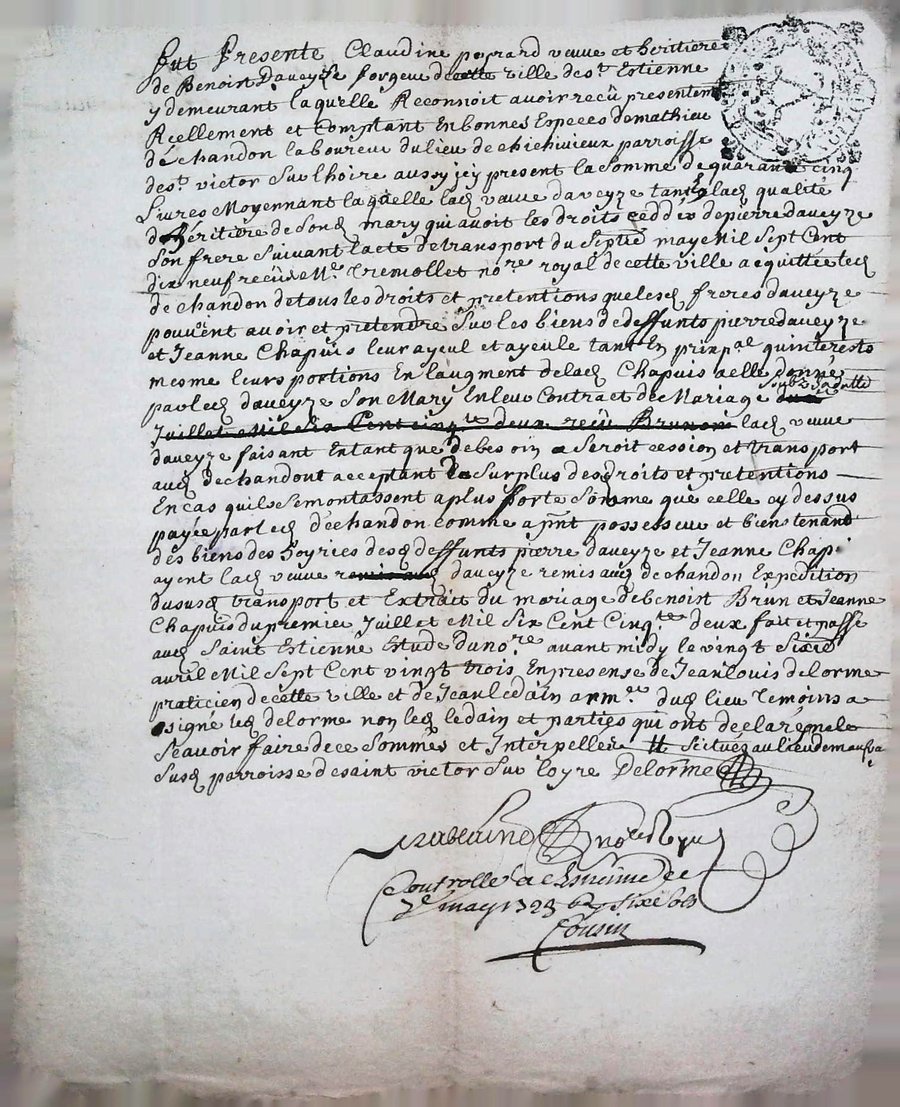 Fut Presente Claudine peyrard veuve et heritiere
de Benoist Daveyze forgeur de cette ville de st Estienne
y demeurant laquelle Reconnoit avoir recû presentem
Reellement et Comptant En bonnes Especes de mathieu
dechandon laboureur du lieu de chichivieux parroisse
de st victor sur lhoire aussy icy present la somme de quarante cinq
Livres Moyennant laquelle lad veuve daveyze tant En lad qualité
d heritiere de sond mary qui avoit les droits ceddéz de pierre daveyze
son frere suivant lacte de transport du septie may Mil sept Cent
dix neuf recû Me Tremollet nore royal de cette ville a cquitté led
de chandon de tous les droits et pretentions que lesd freres daveyze
pouvoient avoir et pretendre sur les biens de deffunts pierre daveyze
et Jeanne Chapuis leur ayeul et ayeule tant En prinpal quinterests
mesme leurs portions En laugment de lad Chapuis a elle donné
par led daveyze son Mary En leur Contract de Mariage
Juillet Mil six Cent cinqte deux recû Brun lad veuve
daveyze faisant En tant que de besoin cession et transport
aud dechandon acceptant du surplus des droits et pretentions
En cas quils se montassent a plus forte somme que celle cy dessus
payée par led dechandon comme a pnt possesseur et bientenand
des biens des hoyries desd deffunts pierre daveyze et Jeanne Chapi
ayent lad veuve remis aud daveyze remis aud de chandon Expedition
du susd transport et Extrait du mariage de benoist Brun et Jeanne
Chapuis du premier Juillet Mil six Cent Cinqte deux fait et passé
aud Saint Estienne Estude du nore avant midy le vingt sixie
avril Mil sept Cent vingt trois En presense de Jean louis delorme
praticien de cette ville et de Jean ledain armer dud lieu temoins a
signé led delorme non led ledain et parties qui ont declaré ne le
sçavoir faire de ce sommés et Interpellés scitués au lieu de
susd parroisse de saint victor sur loyre Delorme
nore Royal
Controllé a st Estienne le
3e may 1723 Rz six sols
Cousin